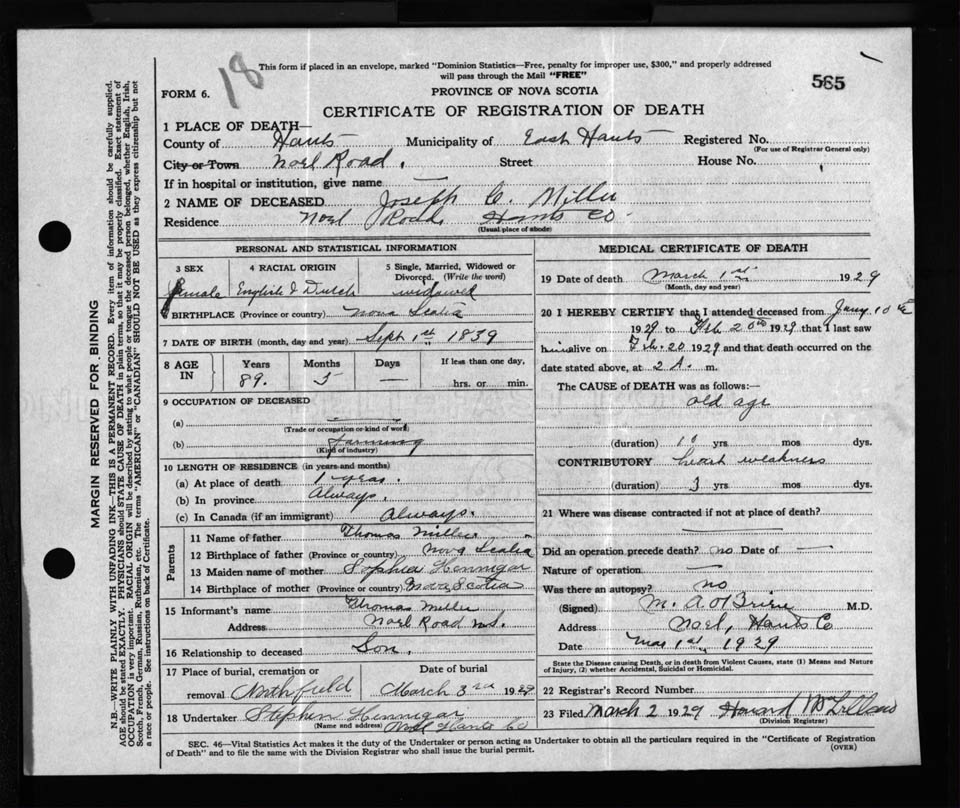 18
This form if placed in an envelope, marked "Dominion Statistics—Free, penalty for improper use, $300," and properly addressed
will pass through the Mail "FREE"
565
FORM 6.
PROVINCE OF NOVA SCOTIA
CERTIFICATE OF REGISTRATION OF DEATH
1 PLACE OF DEATH—
County of Hants Municipality of East Hants Registered No.
(For use of Registrar General only)
City or Town Noel Road. Street House No.
If in hospital or institution, give name —
2 NAME OF DECEASED Joseph C. Miller
Residence Noel Road, Hants Co.
(Usual place of abode)
PERSONAL AND STATISTICAL INFORMATION
3 SEX 4 RACIAL ORIGIN 5 Single, Married, Widowed or
Divorced. (Write the word)
English & Dutch widowed
6 BIRTHPLACE (Province or country) Nova Scotia
7 DATE OF BIRTH (month, day and year) Sept 1st 1839
8 AGE IN Years Months Days If less than one day,
89. 5 — hrs. or min.
9 OCCUPATION OF DECEASED
(a) —
(Trade or occupation or kind of work)
(b) farming
(Kind of industry)
10 LENGTH OF RESIDENCE (in years and months)
(a) At place of death 1 year.
(b) In province Always.
(c) In Canada (if an immigrant) Always.
Parents
11 Name of father Thomas Miller
12 Birthplace of father (Province or country) Nova Scotia
13 Maiden name of mother Sophia Hennigar
14 Birthplace of mother (Province or country) Nova Scotia
15 Informant's name Thomas Miller
Address Noel Road N.S.
16 Relationship to deceased Son.
17 Place of burial, cremation or Date of burial
removal Northfield March 3rd 1929
18 Undertaker Stephen Hennigar
(Name and address) Noel Hants Co
MEDICAL CERTIFICATE OF DEATH
19 Date of death March 1st 1929
(Month, day and year)
20 I HEREBY CERTIFY that I attended deceased from Jany 10th
1929 to Feb. 20th 1929 that I last saw
him alive on Feb. 20 1929 and that death occurred on the
date stated above, at 2 A. m.
The CAUSE OF DEATH was as follows:—
old age
(duration) 10 yrs mos dys.
CONTRIBUTORY heart weakness
(duration) 3 yrs mos dys.
21 Where was disease contracted if not at place of death?
—
Did an operation precede death? no Date of —
Nature of operation —
Was there an autopsy? no
(Signed) M. A. O'Brien M.D.
Address Noel, Hants Co
Date Mar 1st 1929
State the Disease causing Death, or in death from Violent Causes, state (1) Means and Nature
of Injury, (2) whether Accidental, Suicidal or Homicidal.
22 Registrar's Record Number
23 Filed March 2 1929 Howard
(Division Registrar)
SEC. 46—Vital Statistics Act makes it the duty of the Undertaker or person acting as Undertaker to obtain all the particulars required in the "Certificate of Registration
of Death" and to file the same with the Division Registrar who shall issue the burial permit.
(OVER)
MARGIN RESERVED FOR BINDING
N.B.—WRITE PLAINLY WITH UNFADING INK—THIS IS A PERMANENT RECORD. Every item of information should be carefully supplied.
AGE should be stated EXACTLY. PHYSICIANS should STATE CAUSE OF DEATH in plain terms, so that it may be properly classified. Exact statement of
OCCUPATION is very important. RACIAL ORIGIN will be described by stating to what people or tongue the deceased person belonged, whether English, Irish,
Scotch, French, German, Russian, Ruthenian, etc. The terms "AMERICAN" or "CANADIAN" SHOULD NOT BE USED as they express citizenship but not
a race or people. See instructions on back of Certificate.